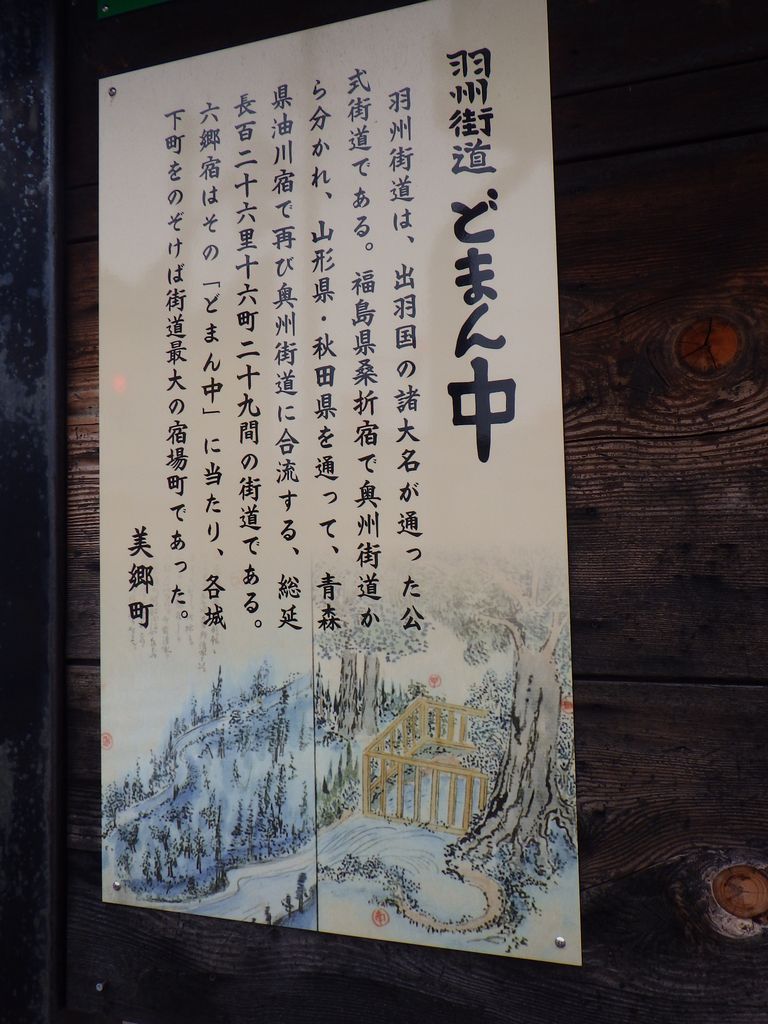 羽州街道 どまん中
羽州街道は、出羽国の諸大名が通った公
式街道である。福島県桑折宿で奥州街道か
ら分かれ、山形県・秋田県を通って、青森
県油川宿で再び奥州街道に合流する、総延
長百二十六里十六町二十九間の街道である。
六郷宿はその「どまん中」に当たり、各城
下町をのぞけば街道最大の宿場町であった。
美郷町